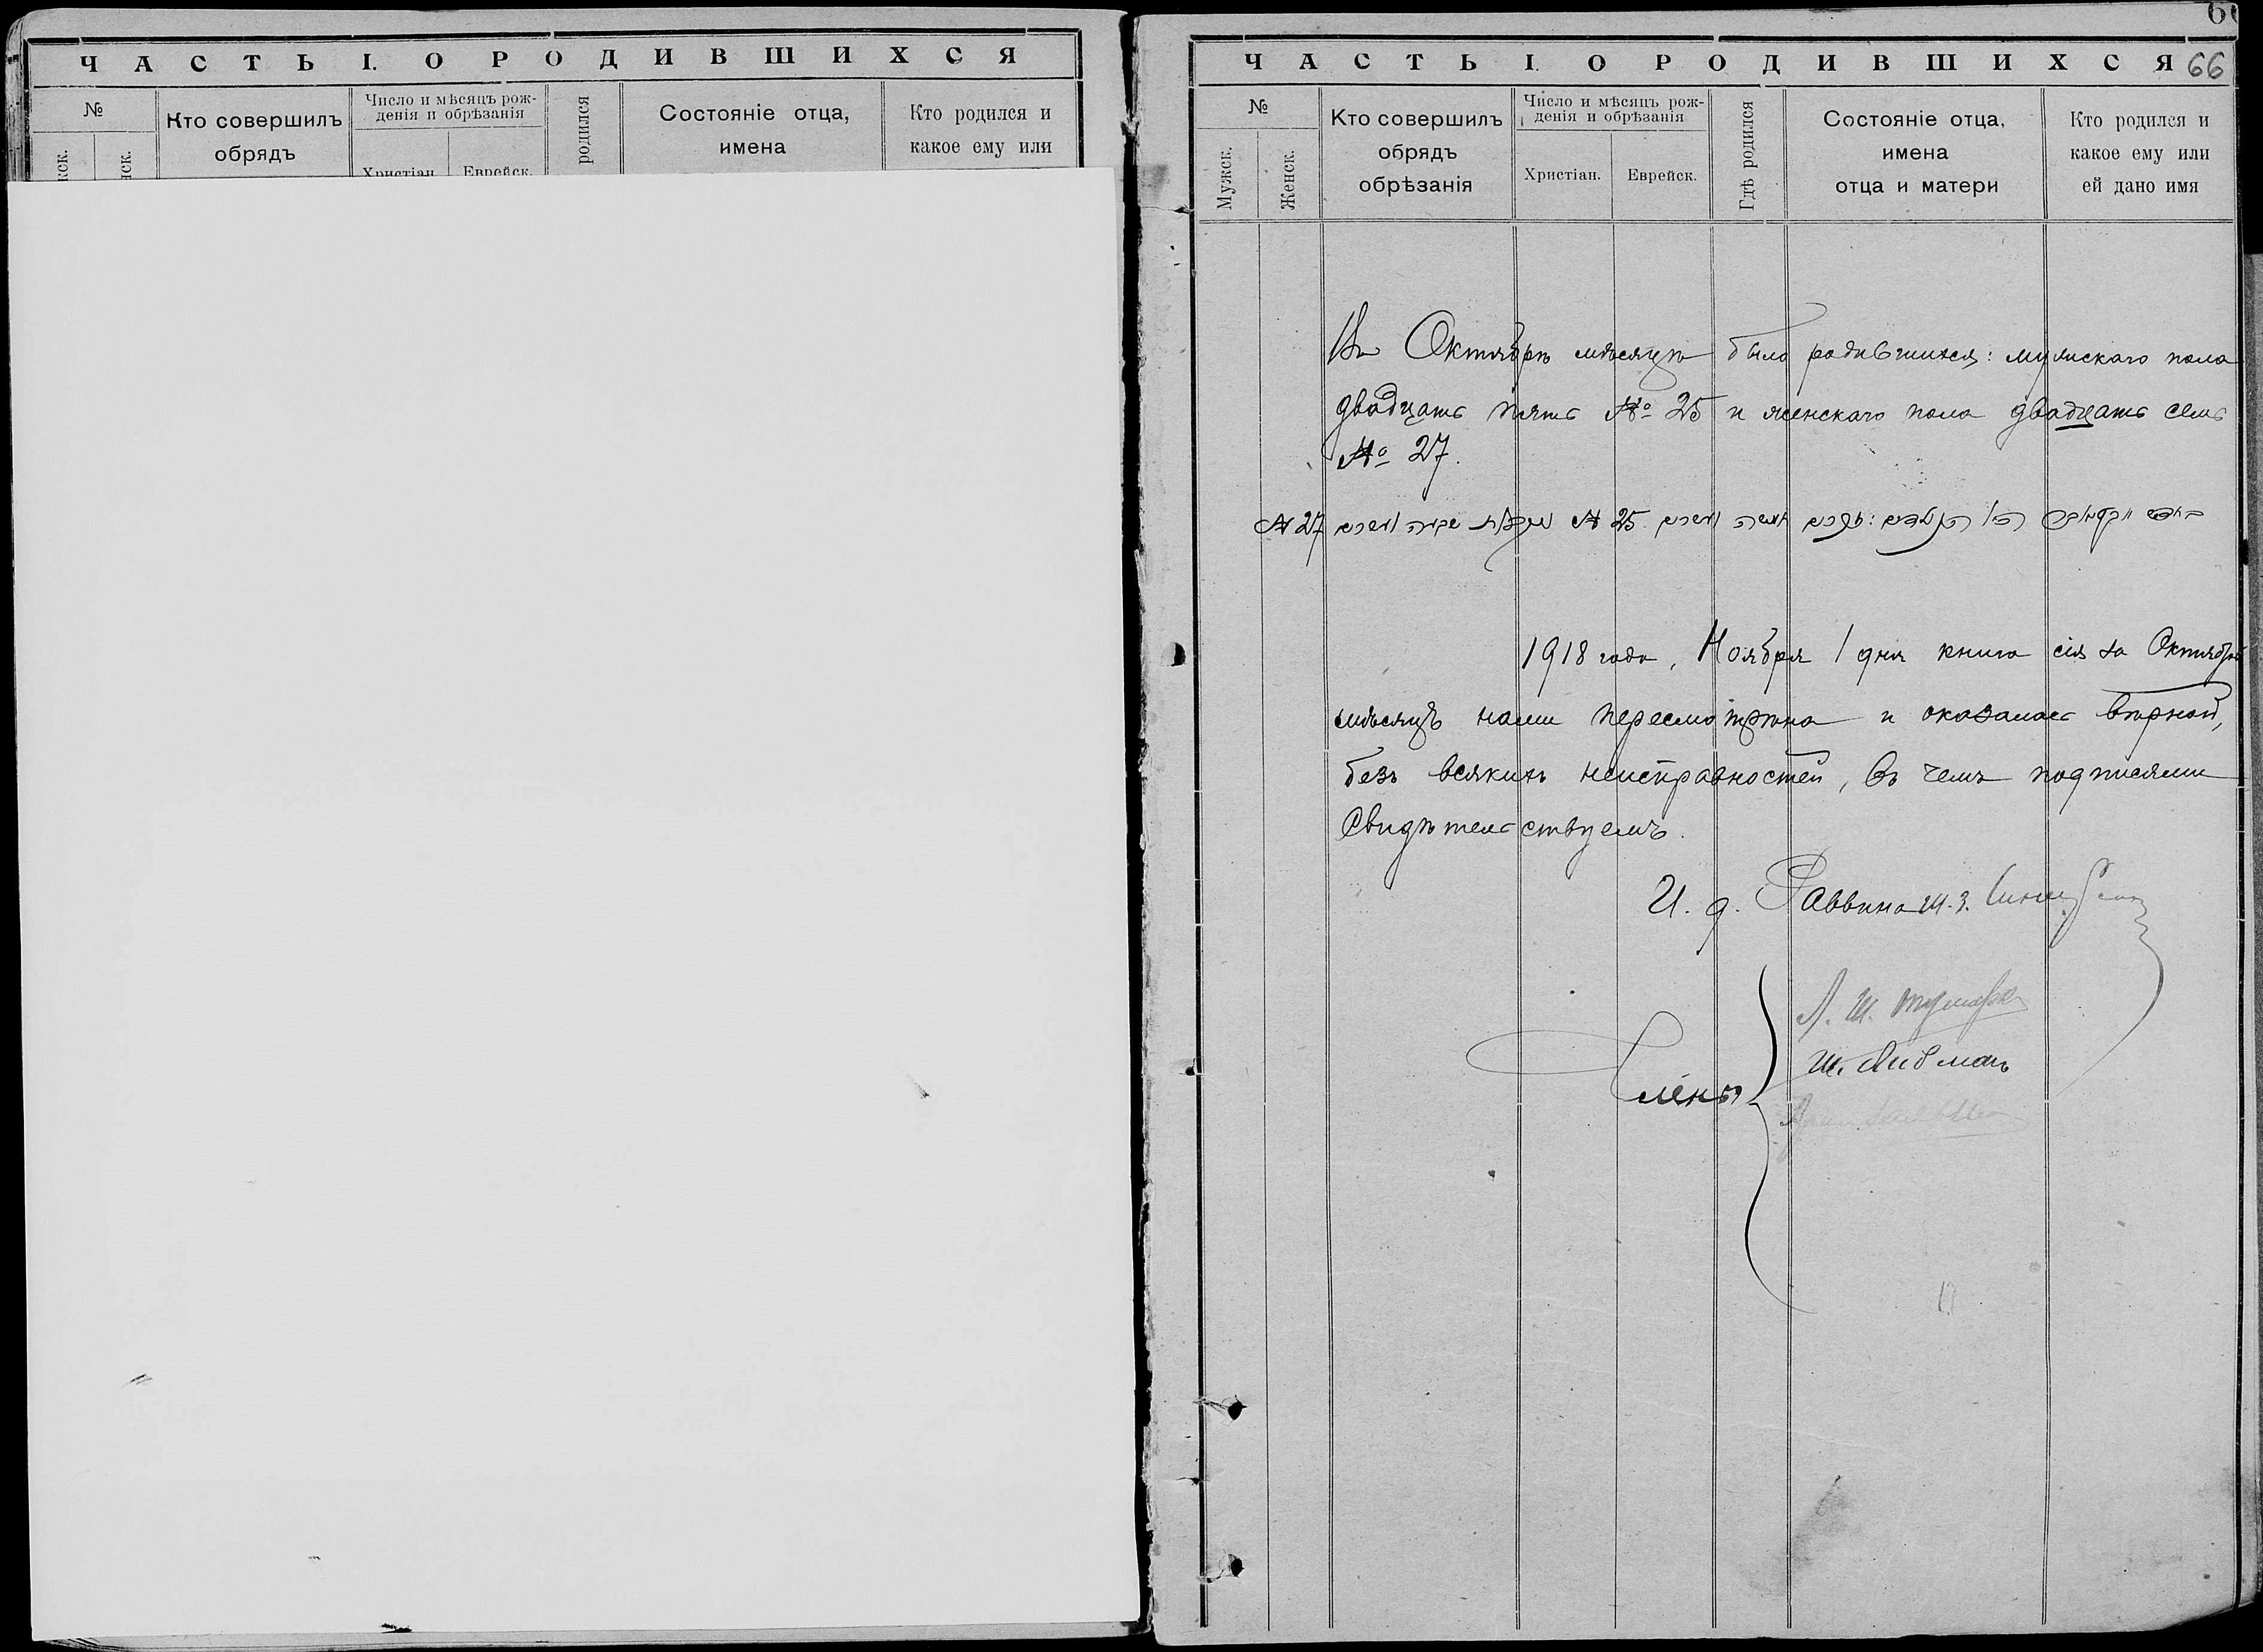 ЧАСТЬ I. О РОДИВШИХСЯ
№
Кто совершилъ
обрядъ
Число и мѣсяцъ рож-
денія и обрѣзанія
Христіан. Еврейск.
родился
Состояніе отца,
имена
Кто родился и
какое ему или
ЧАСТЬ I. О РОДИВШИХСЯ 66
№
Мужск.
Женск.
Кто совершилъ
обрядъ
обрѣзанія
Число и мѣсяцъ рож-
денія и обрѣзанія
Христіан. Еврейск.
Гдѣ родился
Состояніе отца,
имена
отца и матери
Кто родился и
какое ему или
ей дано имя
Въ Октябрѣ мѣсяцѣ было родившихся: мужскаго пола
двадцать пять № 25 и женскаго пола двадцать семь
№ 27.
№ 25 № 27
1918 года, Ноября 1 дня книга сія за Октябрь
мѣсяцъ нами пересмотрѣна и оказалась вѣрной,
безъ всякихъ неисправностей, въ чемъ подписями
Свидѣтельствуемъ.
И. д. Раввина Ш. З.
Члены
Л. Ш.
Ш. Либманъ